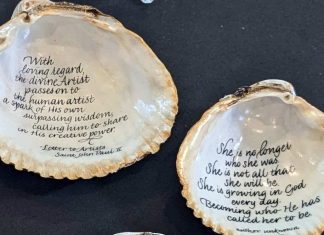 With
loving regard,
the divine Artist
passes on to
the human artist
a spark of His own
surpassing wisdom,
calling him to share
in His creative power
Letter to Artists
Saint John Paul II
She is no longer
who she was.
She is not all that
She will be.
She is growing in God
every day.
Becoming who He has
called her to be.
author unknown